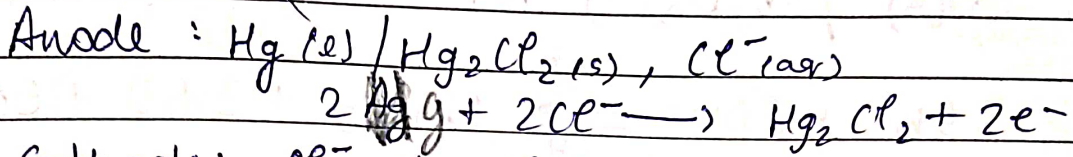 Anode : Hg (l) / Hg₂Cl₂ (s), Cl⁻ (aq)
2 g + 2Cl⁻ ⟶ Hg₂Cl₂ + 2e⁻